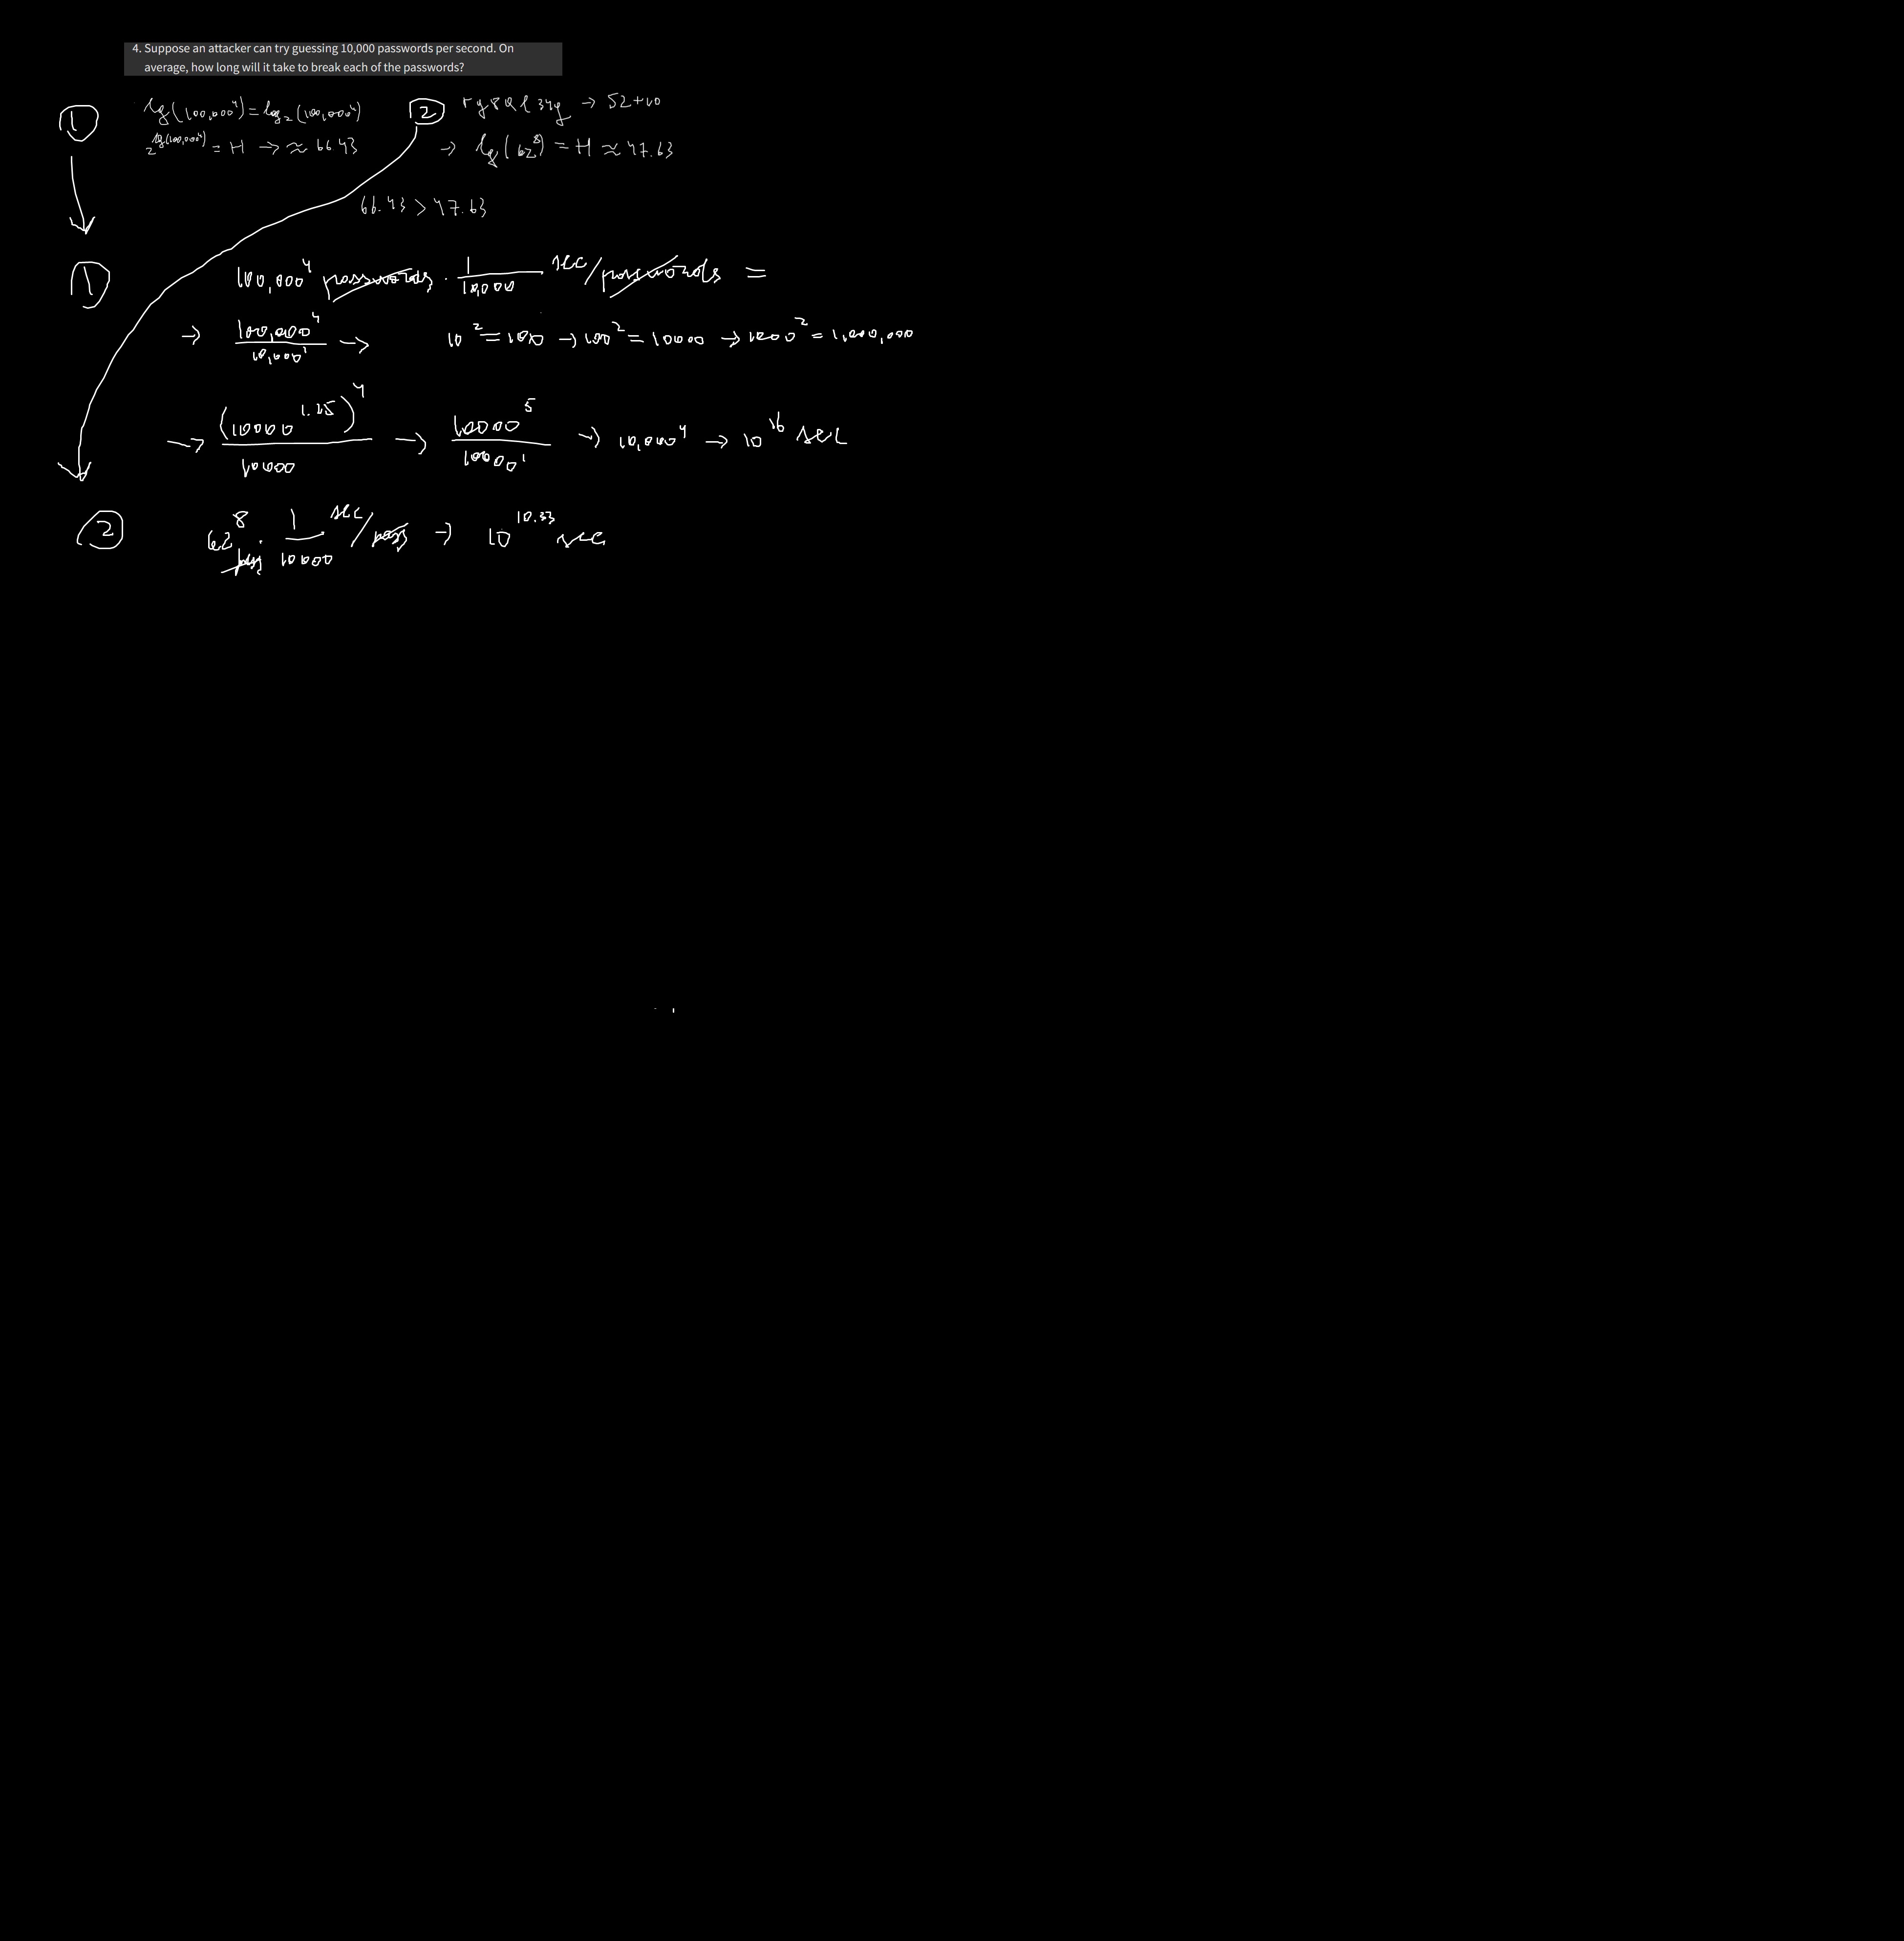 4. Suppose an attacker can try guessing 10,000 passwords per second. On
average, how long will it take to break each of the passwords?
① lg(100,000⁴) = log₂(100,000⁴)
2^lg(100,000⁴) = H → ≈ 66.43
② ry8Ql34y → 52+10
→ lg(62⁸) = H ≈ 47.63
66.43 > 47.63
① 100,000⁴ passwords · 1/10,000 sec/passwords =
→ 100,000⁴/10,000¹ → 10² = 100 → 100² = 10000 → 1000² = 1,000,000
→ (10000^1.25)⁴/10000 → 10000⁵/10000¹ → 10,000⁴ → 10¹⁶ sec
② 62⁸ pass · 1/10000 sec/pass → 10^10.33 sec